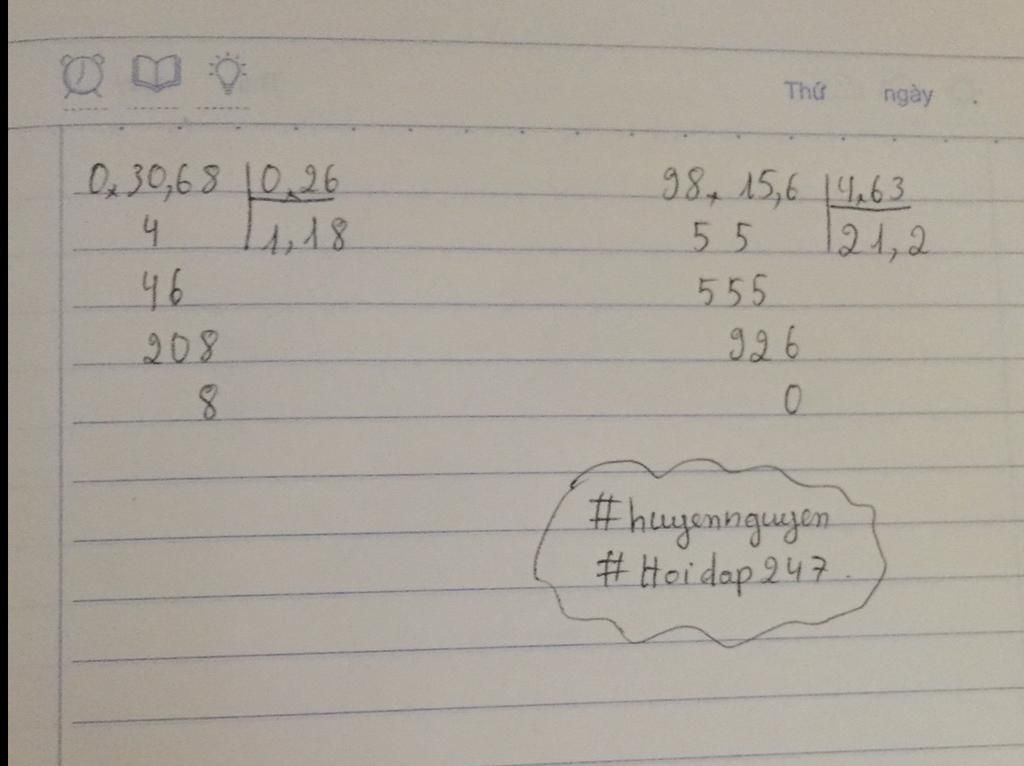 Thứ ngày .
0,30,68 | 0,26
4 | 1,18
46
208
8
98, 15,6 | 4,63
5 5 | 21,2
555
926
0
#huyennguyen
#Hoidap247.